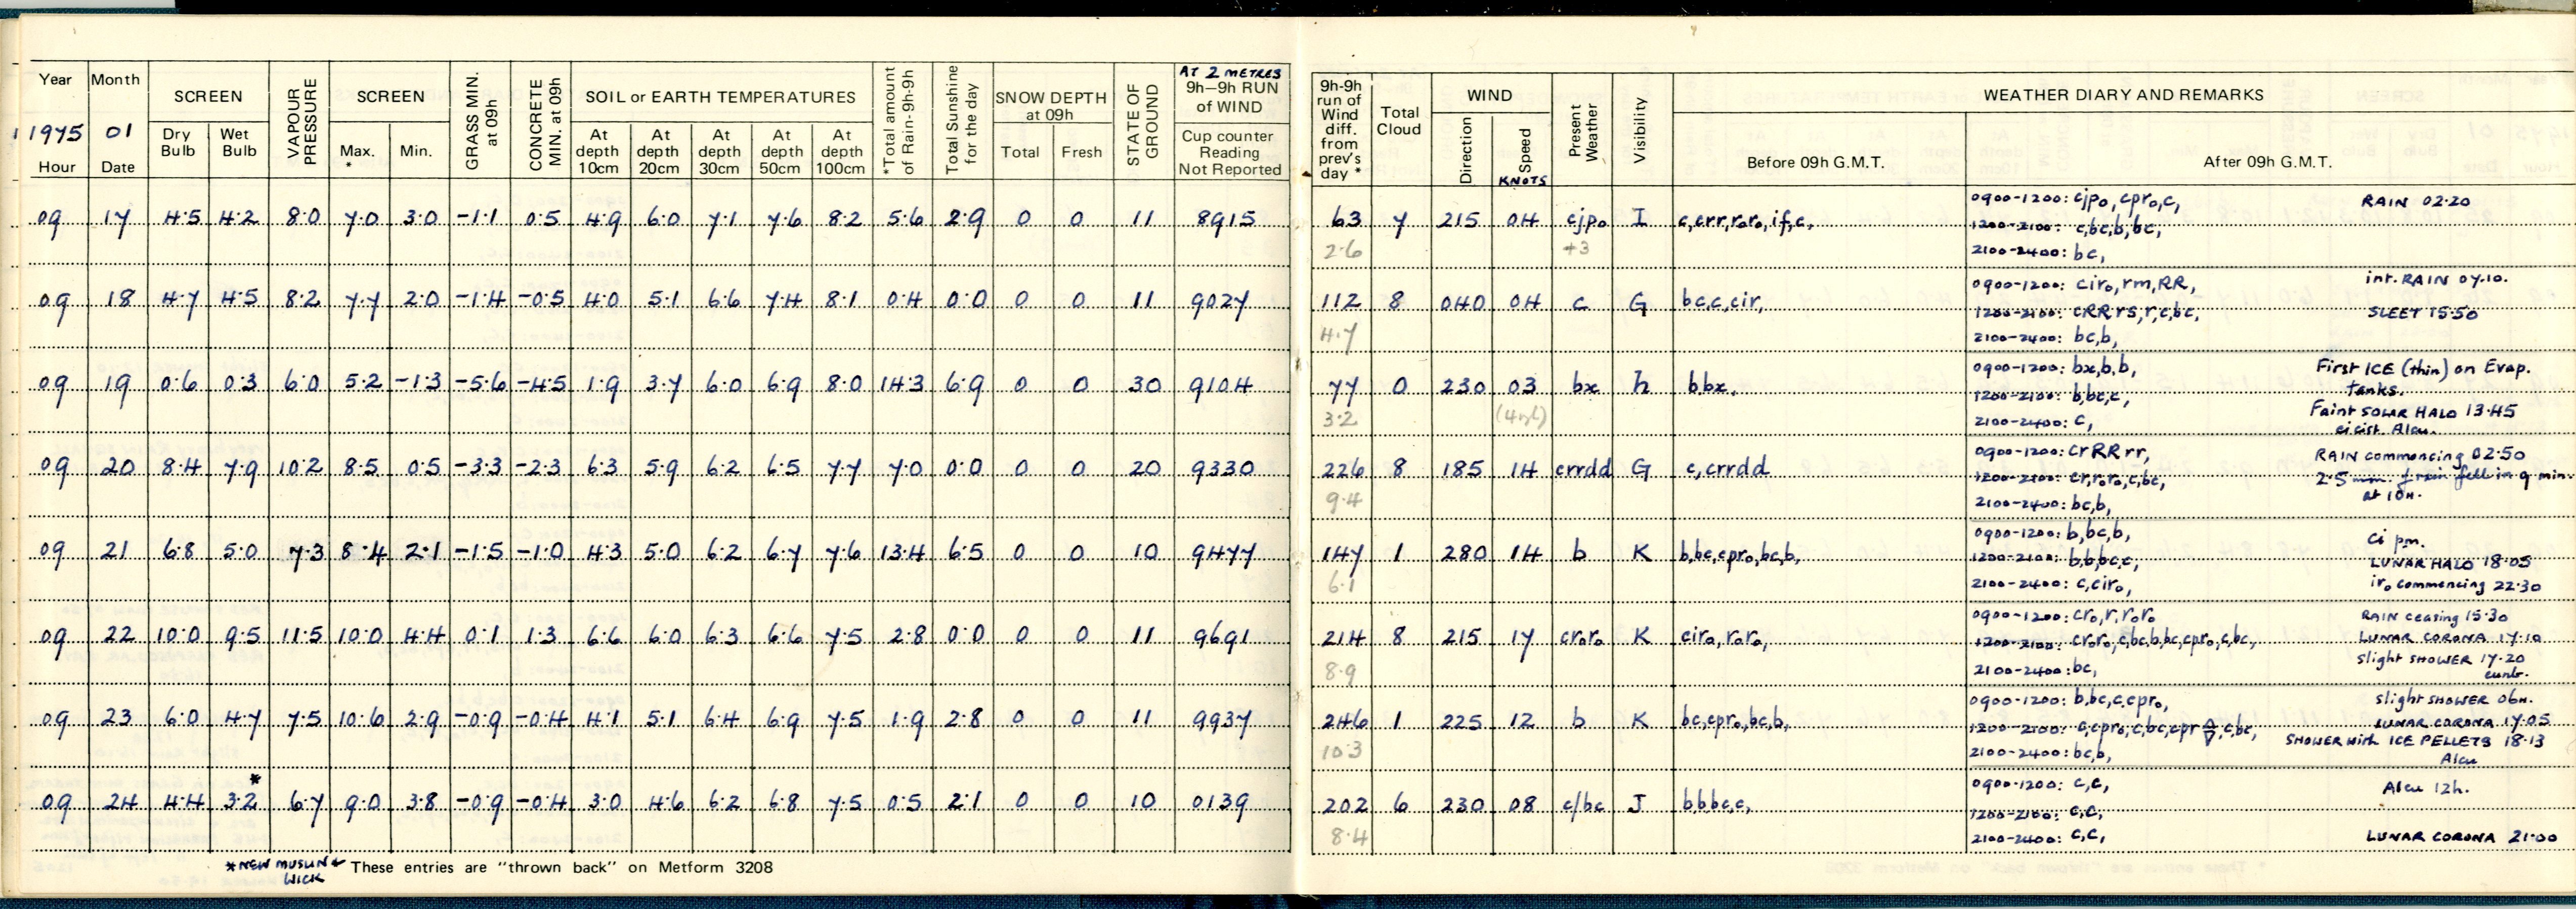 Year Month SCREEN VAPOUR PRESSURE SCREEN GRASS MIN. at 09h CONCRETE MIN. at 09h SOIL or EARTH TEMPERATURES *Total amount of Rain-9h-9h Total Sunshine for the day SNOW DEPTH at 09h STATE OF GROUND AT 2 METRES 9h—9h RUN of WIND
1975 01 Dry Bulb Wet Bulb Max. * Min. At depth 10cm At depth 20cm At depth 30cm At depth 50cm At depth 100cm Total Fresh Cup counter Reading Not Reported
Hour Date
09 17 4·5 4·2 8·0 7·0 3·0 -1·1 0·5 4·9 6·0 7·1 7·6 8·2 5·6 2·9 0 0 11 8915
09 18 4·7 4·5 8·2 7·7 2·0 -1·4 -0·5 4·0 5·1 6·6 7·4 8·1 0·4 0·0 0 0 11 9027
09 19 0·6 0·3 6·0 5·2 -1·3 -5·6 -4·5 1·9 3·7 6·0 6·9 8·0 14·3 6·9 0 0 30 9104
09 20 8·4 7·9 10·2 8·5 0·5 -3·3 -2·3 6·3 5·9 6·2 6·5 7·7 7·0 0·0 0 0 20 9330
09 21 6·8 5·0 7·3 8·4 2·1 -1·5 -1·0 4·3 5·0 6·2 6·7 7·6 13·4 6·5 0 0 10 9477
09 22 10·0 9·5 11·5 10·0 4·4 0·1 1·3 6·6 6·0 6·3 6·6 7·5 2·8 0·0 0 0 11 9691
09 23 6·0 4·7 7·5 10·6 2·9 -0·9 -0·4 4·1 5·1 6·4 6·9 7·5 1·9 2·8 0 0 11 9937
*
09 24 4·4 3·2 6·7 9·0 3·8 -0·9 -0·4 3·0 4·6 6·2 6·8 7·5 0·5 2·1 0 0 10 0139
*NEW MUSLIN + WICK
These entries are "thrown back" on Metform 3208
9h-9h run of Wind diff. from prev's day * Total Cloud WIND Present Weather Visibility WEATHER DIARY AND REMARKS
Direction Speed KNOTS Before 09h G.M.T. After 09h G.M.T.
63 7 215 04 cjpo I c,crr,roro,if,c, 0900-1200: cjpo,cpro,c, RAIN 02·20
1200-2100: c,bc,b,bc,
2·6 +3 2100-2400: bc,
112 8 040 04 c G bc,c,cir, 0900-1200: ciro,rm,RR, int. RAIN 07·10.
1200-2100: cRRrs,r,c,bc, SLEET 15·50
4·7 2100-2400: bc,b,
77 0 230 03 bx h b,bx, 0900-1200: bx,b,b, First ICE (thin) on Evap. tanks.
1200-2100: b,bc,c,
3·2 2100-2400: c, Faint SOLAR HALO 13·45
cicist. Alcu.
226 8 185 14 crrdd G c,crrdd 0900-1200: crRRrr, RAIN commencing 02·50
1200-2100: cr,roro,c,bc, 2·5 mm. of rain fell in 9 min. at 10H.
9·4 2100-2400: bc,b,
147 1 280 14 b K b,bc,cpro,bc,b, 0900-1200: b,bc,b, Ci pm.
1200-2100: b,b,bc,c, LUNAR HALO 18·05
6·1 2100-2400: c,ciro, iro commencing 22·30
214 8 215 17 croro K ciro,roro, 0900-1200: cro,r,roro RAIN ceasing 15·30
1200-2100: croro,c,bc,b,bc,cpro,c,bc, LUNAR CORONA 17·10
8·9 2100-2400: bc, slight SHOWER 17·20
cunb.
246 1 225 12 b K bc,cpro,bc,b, 0900-1200: b,bc,c,cpro, slight SHOWER 06H.
1200-2100: c,cpro,c,bc,cpr,c,bc, LUNAR CORONA 17·05
10·3 2100-2400: bc,b, SHOWER with ICE PELLETS 18·13
Alcu
202 6 230 08 c/bc J b,b,bc,c, 0900-1200: c,c, Alcu 12h.
1200-2100: c,c,
8·4 2100-2400: c,c, LUNAR CORONA 21·00